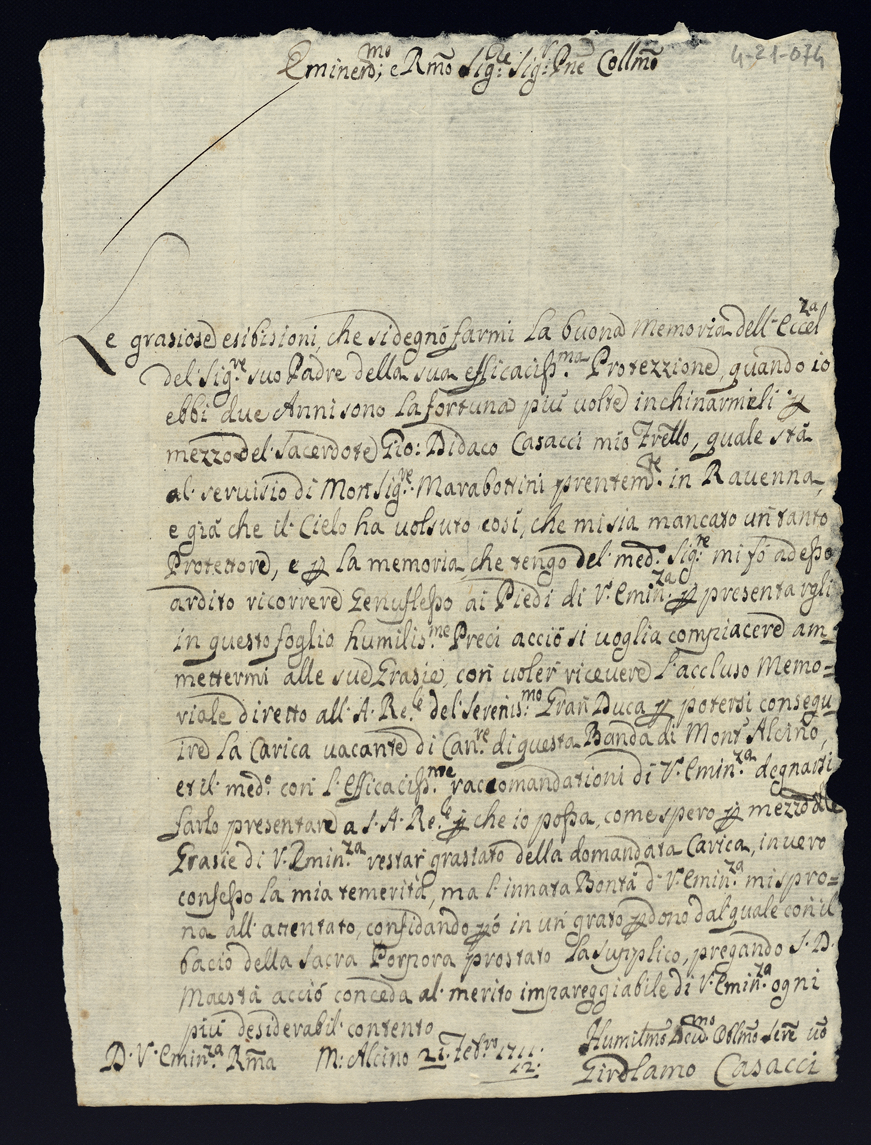 4-21-074
Eminen:mo e Rmo Sig:re Sig:r Pne Collmo
Le grasiose esibisioni, che si degnó farmi la buona Memoria dell'Eccel:za
del Sig:re suo Padre della sua efficaciss:ma Protezzione, quando io
ebbi due Anni sono la fortuna piú volte inchinarmeli p
mezzo del Sacerdote Gio: Didaco Casacci mio Frello, quale stá
al servisio di Monsig:re Marabottini prentem:te in Ravenna,
e giá che il Cielo ha volsuto cosí, che mi sia mancato un tanto
Protettore, e p la memoria che tengo del med:o Sig:re mi fó adesso
ardito ricorrere Genuflesso ai Piedi di V:Emin:za p presentargli
in questo foglio humilis:me Preci acció si voglia compiacere am=
mettermi alle sue Grasie, con voler ricevere l'accluso Memo=
riale diretto all'A: Re:le del Serenis:mo Gran Duca p potersi consegu=
ire la Carica vacante di Can:re di questa Banda di Mont'Alcino,
et il med:o con l'efficaciss:me raccomandationi di V:Emin:za degnarsi
farlo presentare a S:A:Re:le p che io possa, come spero p mezzo dle
Grasie di V:Emin:za restar grasiato della domandata Carica, in vero
confesso la mia temeritá, ma l'innata Bontá di V:Emin:za mi spro=
na all'attentato, confidando pó in un grato pdono dal quale con il
bacio della Sacra Porpora prostato la supplico, pregando S:D:
Maestá acció conceda al merito impareggiabile di V:Emin:za ogni
piú desiderabil contento
D:V:Emin:za Rma M: Alcino 21: Feb:ro 1711:
12:
Humilmo Devmo Obllmo Sere vo
Girolamo Casacci